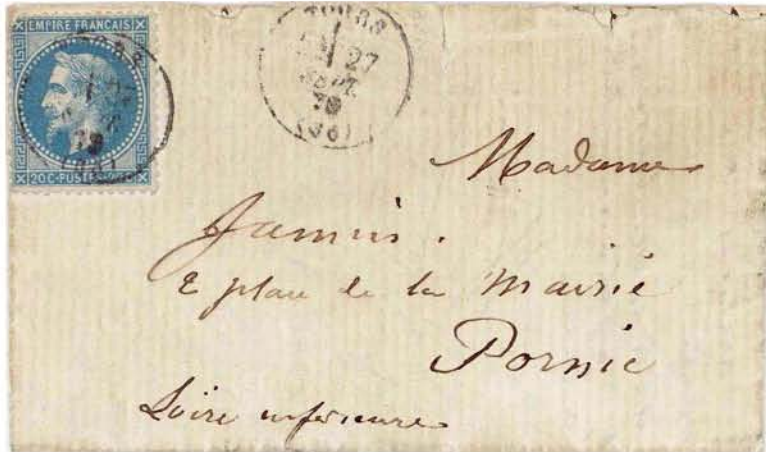 EMPIRE FRANÇAIS
20C-POSTES-20C
TOURS
27
SEPT.
70
(36)
Madame
Jamin.
2 place de la Mairie
Pornic
Loire inférieure